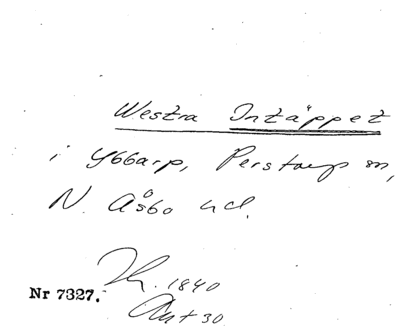 Westra Intäppet
i Ybbarp, Perstorp sn,
N. Åsbo hd.
Th. 1840
Nr 7327.
Akt 30